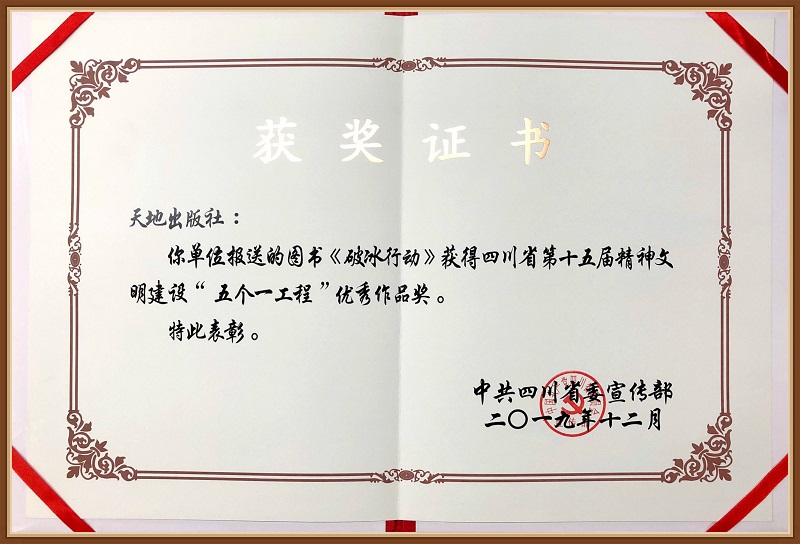 获奖证书
天地出版社：
你单位报送的图书《破冰行动》获得四川省第十五届精神文
明建设“五个一工程”优秀作品奖。
特此表彰。
中共四川省委宣传部
二〇一九年十二月